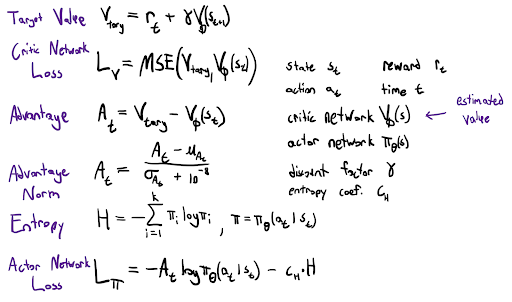 Target Value V_targ = r_t + γV_φ(s_t+1)
Critic Network Loss L_V = MSE(V_targ, V_φ(s_t))
Advantage A_t = V_targ − V_φ(s_t)
Advantage Norm A_t = (A_t − μ_A_t) / (σ_A_t + 10^-8)
Entropy H = −∑_{i=1}^{k} π_i log π_i , π = π_θ(a_t | s_t)
Actor Network Loss L_π = −A_t log π_θ(a_t | s_t) − c_H · H
state s_t reward r_t
action a_t time t
critic network V_φ(s) ← estimated value
actor network π_θ(s)
discount factor γ
entropy coef. c_H